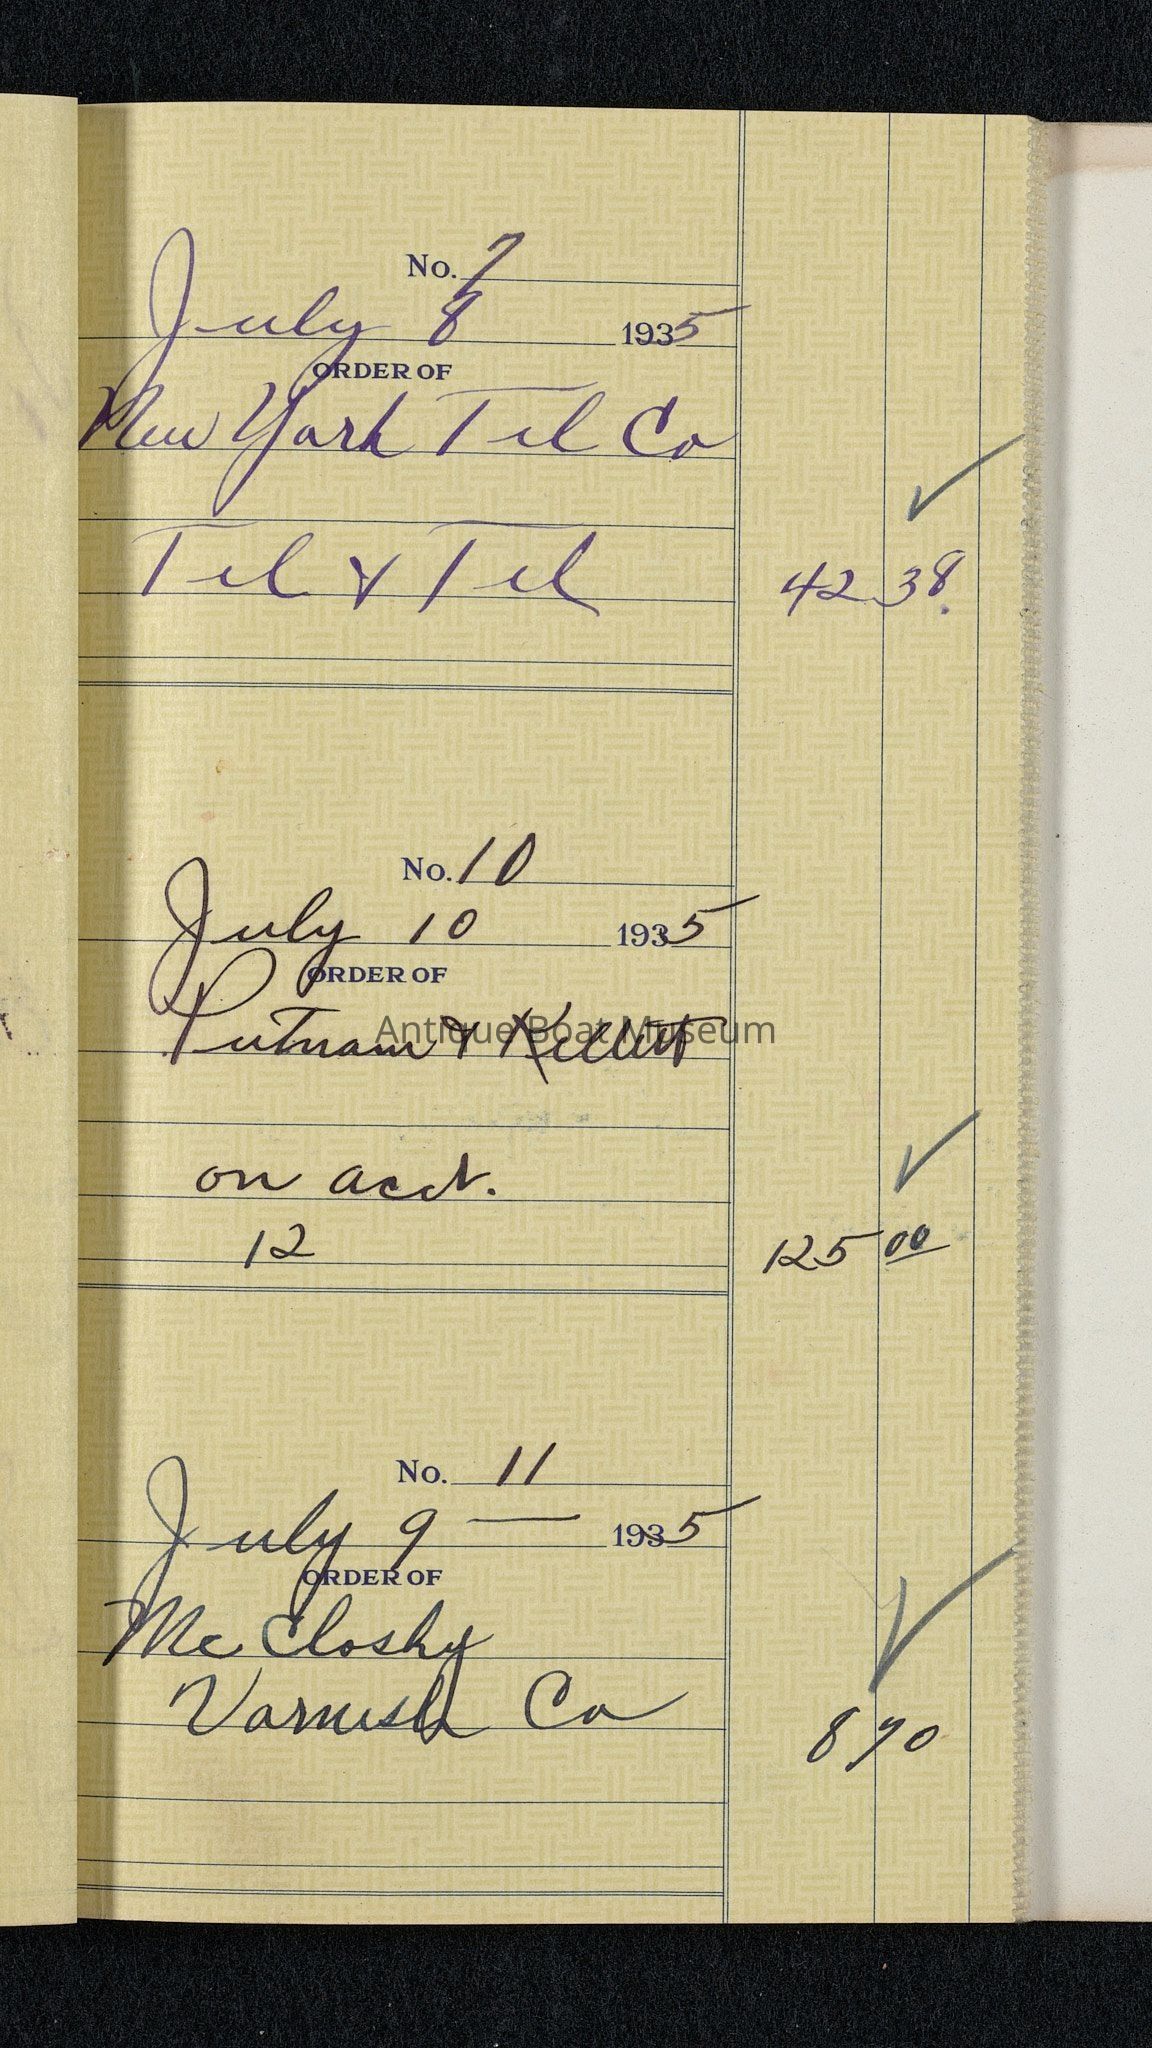 No. 7
July 8 1935
ORDER OF
New York Tel Co
✓
Tel & Tel 42 38.
No. 10
July 10 1935
ORDER OF
Putnam & Kellett
Antique Boat Museum
on acct. ✓
12 125 00
No. 11
July 9 — 1935
ORDER OF
Mc Closky ✓
Varnish Co
8 70